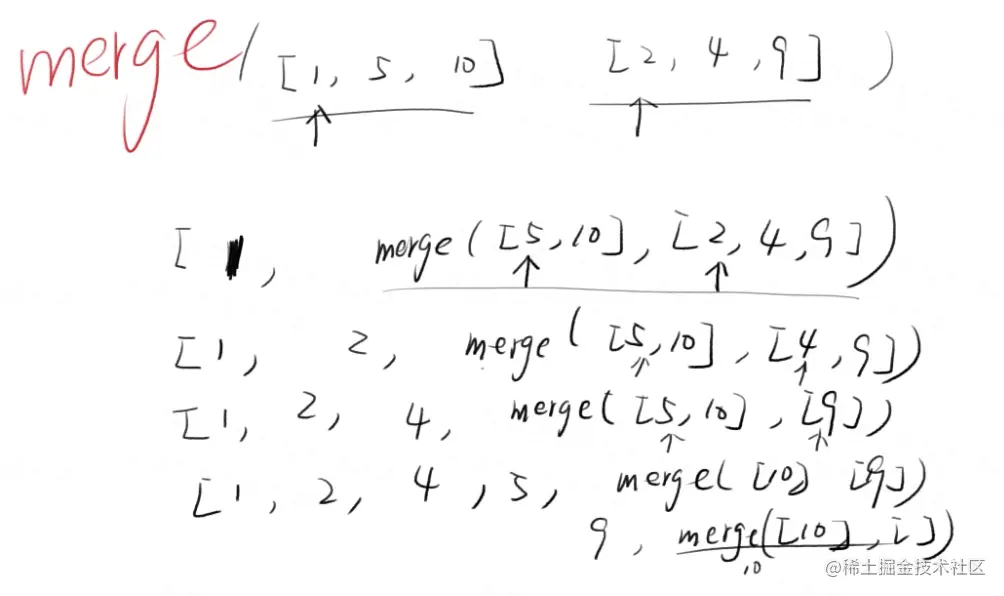 merge( [1, 5, 10] [2, 4, 9] )
[ 1, merge([5,10], [2,4,9])
[1, 2, merge([5,10], [4,9])
[1, 2, 4, merge([5,10], [9])
[1, 2, 4, 5, merge([10] [9])
9, merge([10], [])
10
@稀土掘金技术社区